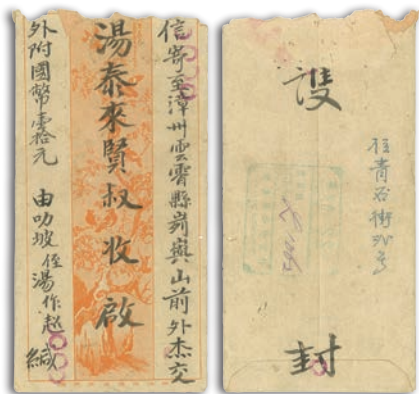 信寄至漳州雲霄縣峛嶼山前外杰交
湯泰來賢叔收啟
外附國幣壹拾元 由叻坡侄湯作赳緘
護
封
往青石街